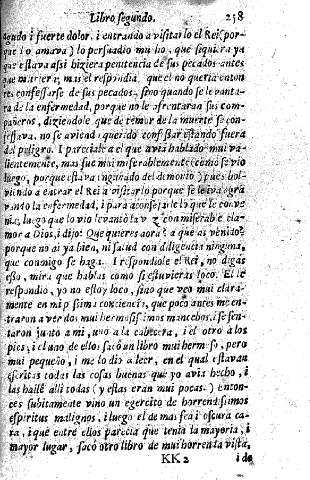 Libro segundo. 258
agudo i fuerte dolor, i entrando a visitarlo el Rei (por-
que lo amava) lo persuadio mucho, que siquiera ya
que estava assi hiziera penitencia de sus pecados antes
que muriera, mas el respondia que el no queria enton
ces confessarse de sus pecados, sino quando se levanta-
ra de la enfermedad, porque no le afrentaran sus com-
pañeros, diziendole que de temor de la muerte se con-
fessava, no se aviendo querido confessar estando fuera
del peligro. I pareciale a el que avia hablado mui va-
lientemente, mas fue mui miserablemente (como se vio
luego, porque estava engañado del demonio) pues bol-
viendo a entrar el Rei a visitarlo porque se le iva agra
vando la enfermedad, i para aconsejarle lo que le conve
nia, luego que lo vio levantó la voz con miserable cla-
mor a Dios, i dijo: Que quieres aora? a que as venido?
porque no ai ya bien, ni salud con diligencia ninguna,
que conmigo se haga. I respondiole el Rei, no digas
esso, mira que hablas como si estuvieras loco. El le
respondio, yo no estoy loco, sino que veo mui clara-
mente en mi pessima conciencia, que poco antes me en-
traron a ver dos mui hermosissimos mancebos, i se sen-
taron junto a mi, uno a la cabecera, i el otro a los
pies, i el uno de ellos sacó un libro mui hermoso, pero
mui pequeño, i me lo dio a leer, en el qual estavan
escritas todas las cosas buenas que yo avia hecho, i
las hallè alli todas (y estas eran mui pocas.) enton-
ces subitamente vino un egercito de horrentissimos
espiritus malignos, i luego el de mas fea i oscura ca-
ra, i que entre ellos parecia que tenia la mayoria, i
mayor lugar, sacó otro libro de mui horrenta vista,
KK 2 i de